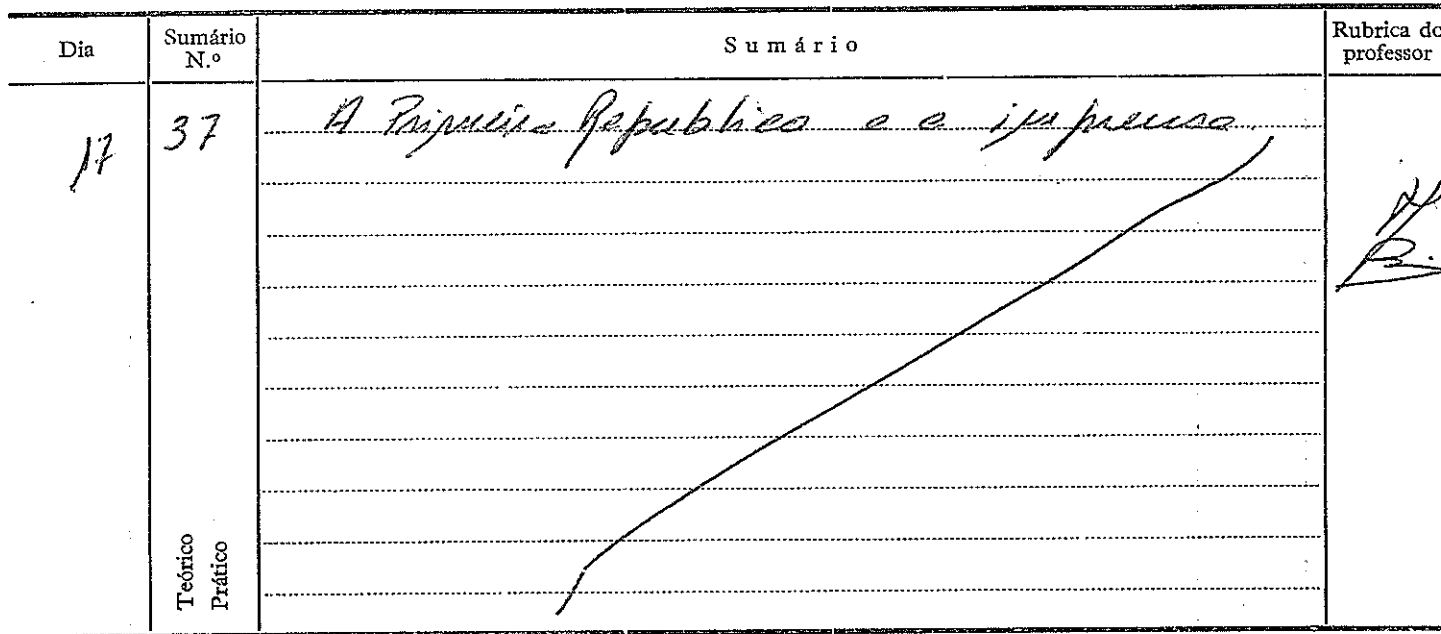 Dia
Sumário N.º
Sumário
Rubrica do professor
17
37
A Primeira Republica e a imprensa.
Teórico
Prático